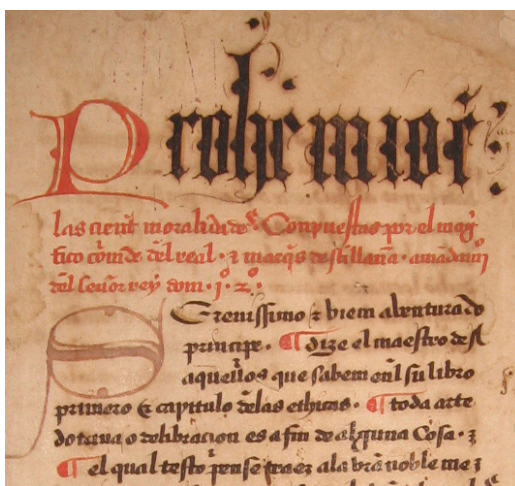 Prohemio
las cient moralidades Conpuestas por el mag
fico conde del real · z marq̄s de stillana ·
del señor rey don · jº · 2º ·
Serenissimo z bien abenturado
prinçipe · ¶ dize el maestro de
aquellos que saben enl su libro
primero capitulo delas ethicas · ¶ toda arte
dotrina o delibracion es a fin de alguna Cosa · z
¶ el qual testo pense traer ala vrā noble me